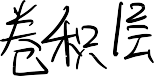 卷积层